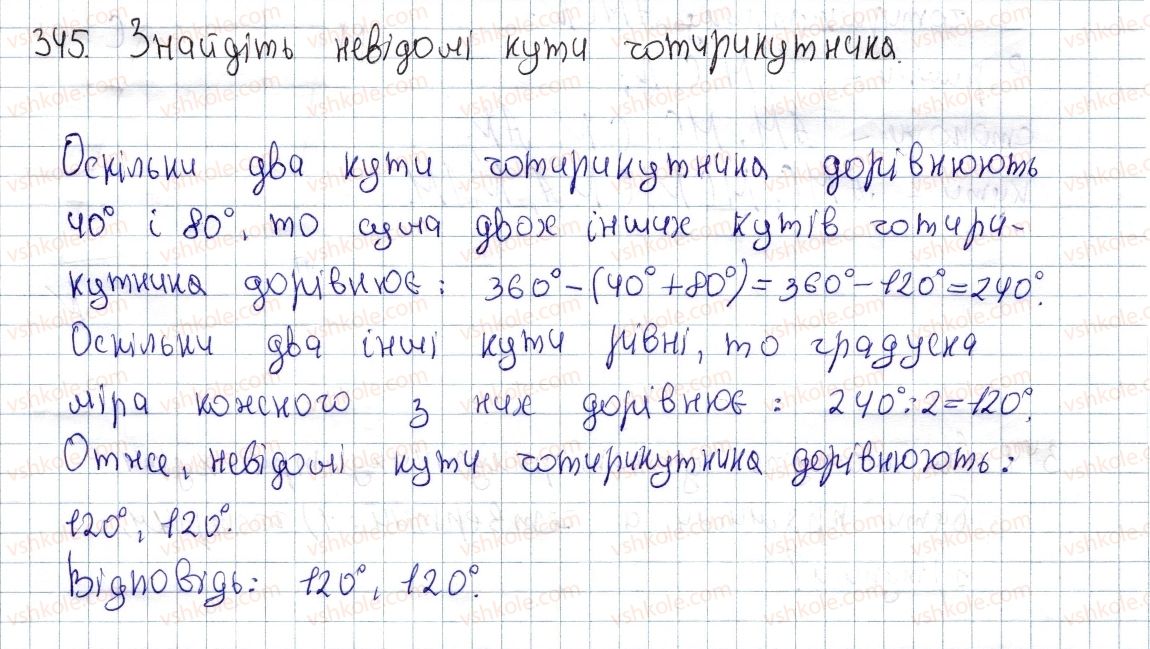 345. Знайдіть невідомі кути чотирикутника.
Оскільки два кути чотирикутника дорівнюють
40° і 80°, то сума двох інших кутів чотири-
кутника дорівнює: 360°-(40°+80°)=360°-120°=240°.
Оскільки два інші кути рівні, то градусна
міра кожного з них дорівнює: 240°:2=120°.
Отже, невідомі кути чотирикутника дорівнюють:
120°, 120°.
Відповідь: 120°, 120°.